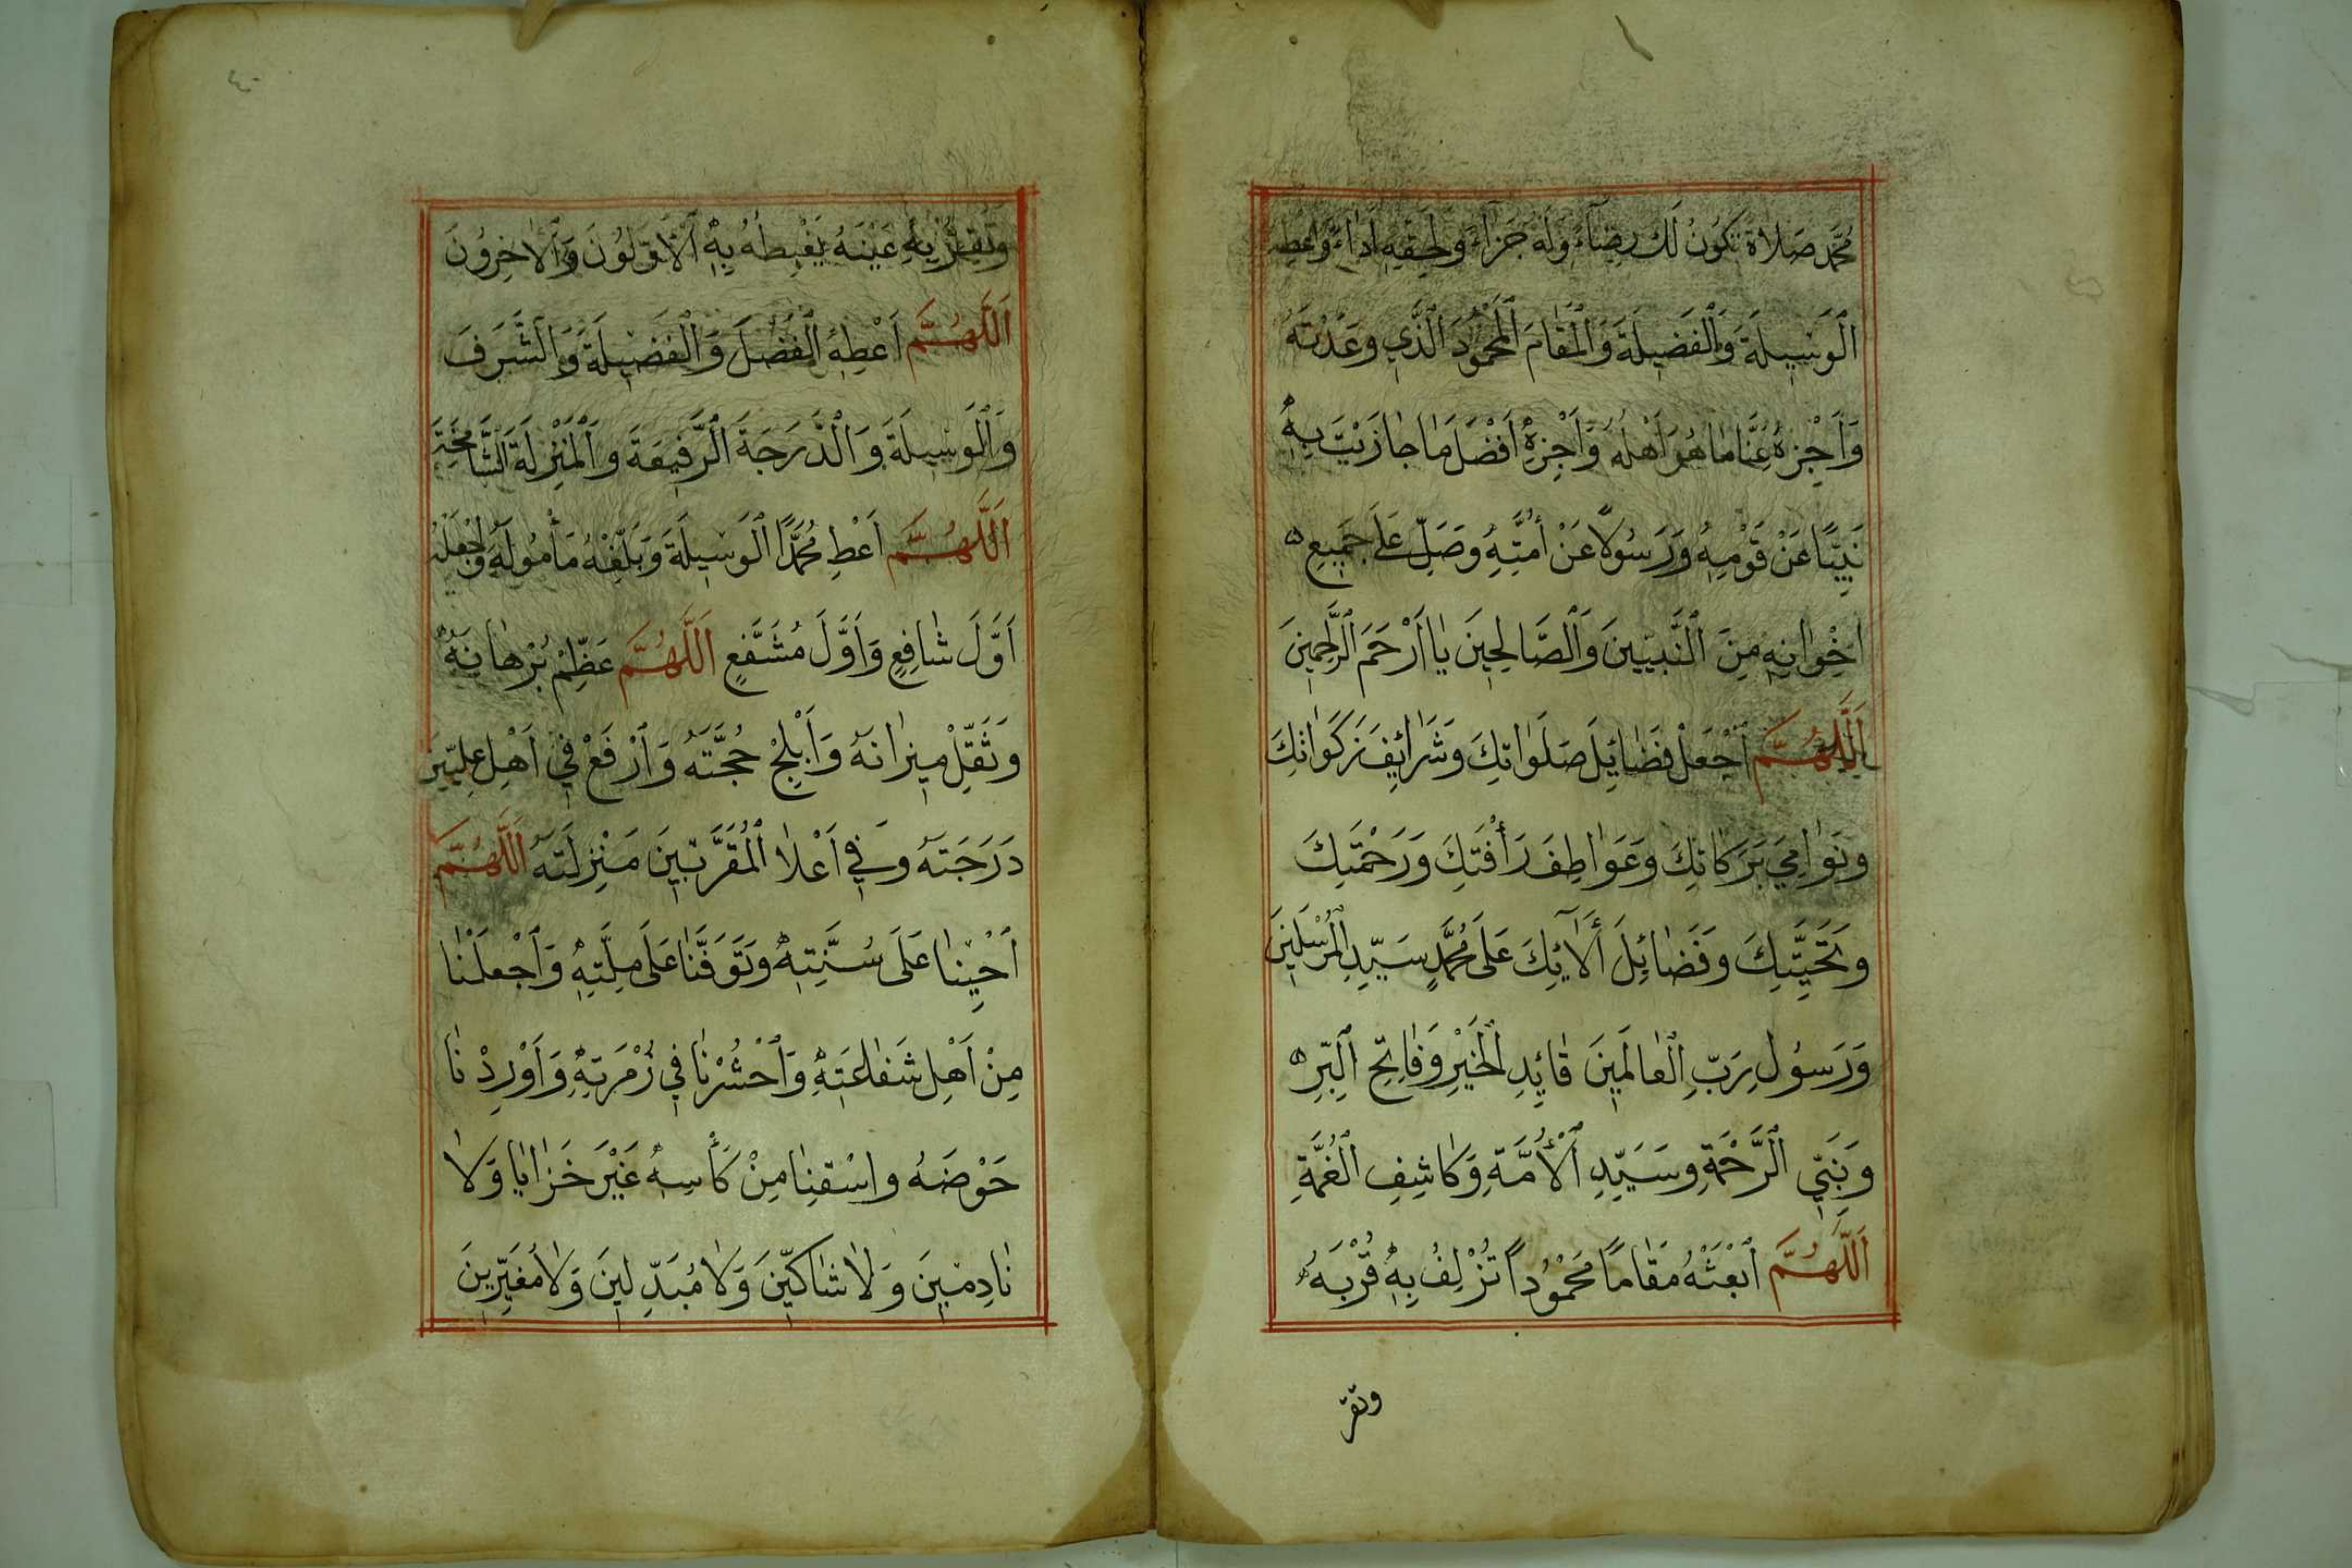 مُحَمَّدٍ صَلَاةً تَكُونُ لَكَ رِضَاءً وَلَهُ جَزَاءً وَلِحَقِّهِ اَدَاءً وَاَعْطِهِ
الْوَسِيلَةَ وَالْفَضِيلَةَ وَالْمَقَامَ الْمَحْمُودَ الَّذِي وَعَدْتَهُ
وَاَجْزِهِ عَنَّا مَا هُوَ اَهْلُهُ وَاَجْزِهِ اَفْضَلَ مَا جَازَيْتَ بِهِ
نَبِيًّا عَنْ قَوْمِهِ وَرَسُولًا عَنْ اُمَّتِهِ وَصَلِّ عَلَى جَمِيعِ
اِخْوَانِهِ مِنَ النَّبِيِّينَ وَالصَّالِحِينَ يَا اَرْحَمَ الرَّاحِمِينَ
اَللَّهُمَّ اجْعَلْ فَضَائِلَ صَلَوَاتِكَ وَشَرَائِفَ زَكَوَاتِكَ
وَنَوَامِيَ بَرَكَاتِكَ وَعَوَاطِفَ رَأْفَتِكَ وَرَحْمَتِكَ
وَتَحِيَّتِكَ وَفَضَائِلَ أَلَآئِكَ عَلَى مُحَمَّدٍ سَيِّدِ الْمُرْسَلِينَ
وَرَسُولِ رَبِّ الْعَالَمِينَ قَائِدِ الْخَيْرِ وَفَاتِحِ الْبِرِّ
وَنَبِيِّ الرَّحْمَةِ وَسَيِّدِ الْأُمَّةِ وَكَاشِفِ الْغُمَّةِ
اَللَّهُمَّ ابْعَثْهُ مَقَامًا مَحْمُودًا تُزْلِفُ بِهِ قُرْبَهُ
وتقرّ
٤٠
وَتُقِرُّ بِهِ عَيْنَهُ يَغْبِطُهُ بِهِ الْاَوَّلُونَ وَالْاٰخِرُونَ
اَللَّهُمَّ اَعْطِهِ الْفَضْلَ وَالْفَضِيلَةَ وَالشَّرَفَ
وَالْوَسِيلَةَ وَالدَّرَجَةَ الرَّفِيعَةَ وَالْمَنْزِلَةَ الشَّامِخَةَ
اَللَّهُمَّ اَعْطِ مُحَمَّدًا الْوَسِيلَةَ وَبَلِّغْهُ مَأْمُولَهُ وَاجْعَلْهُ
اَوَّلَ شَافِعٍ وَاَوَّلَ مُشَفَّعٍ اَللَّهُمَّ عَظِّمْ بُرْهَانَهُ
وَثَقِّلْ مِيزَانَهُ وَاَبْلِجْ حُجَّتَهُ وَارْفَعْ فِي اَهْلِ عِلِّيِّينَ
دَرَجَتَهُ وَفِي اَعْلَا الْمُقَرَّبِينَ مَنْزِلَتَهُ اَللَّهُمَّ
اَحْيِنَا عَلَى سُنَّتِهِ وَتَوَفَّنَا عَلَى مِلَّتِهِ وَاجْعَلْنَا
مِنْ اَهْلِ شَفَاعَتِهِ وَاحْشُرْنَا فِي زُمْرَتِهِ وَاَوْرِدْنَا
حَوْضَهُ وَاسْقِنَا مِنْ كَأْسِهِ غَيْرَ خَزَايَا وَلَا
نَادِمِينَ وَلَا شَاكِّينَ وَلَا مُبَدِّلِينَ وَلَا مُغَيِّرِينَ